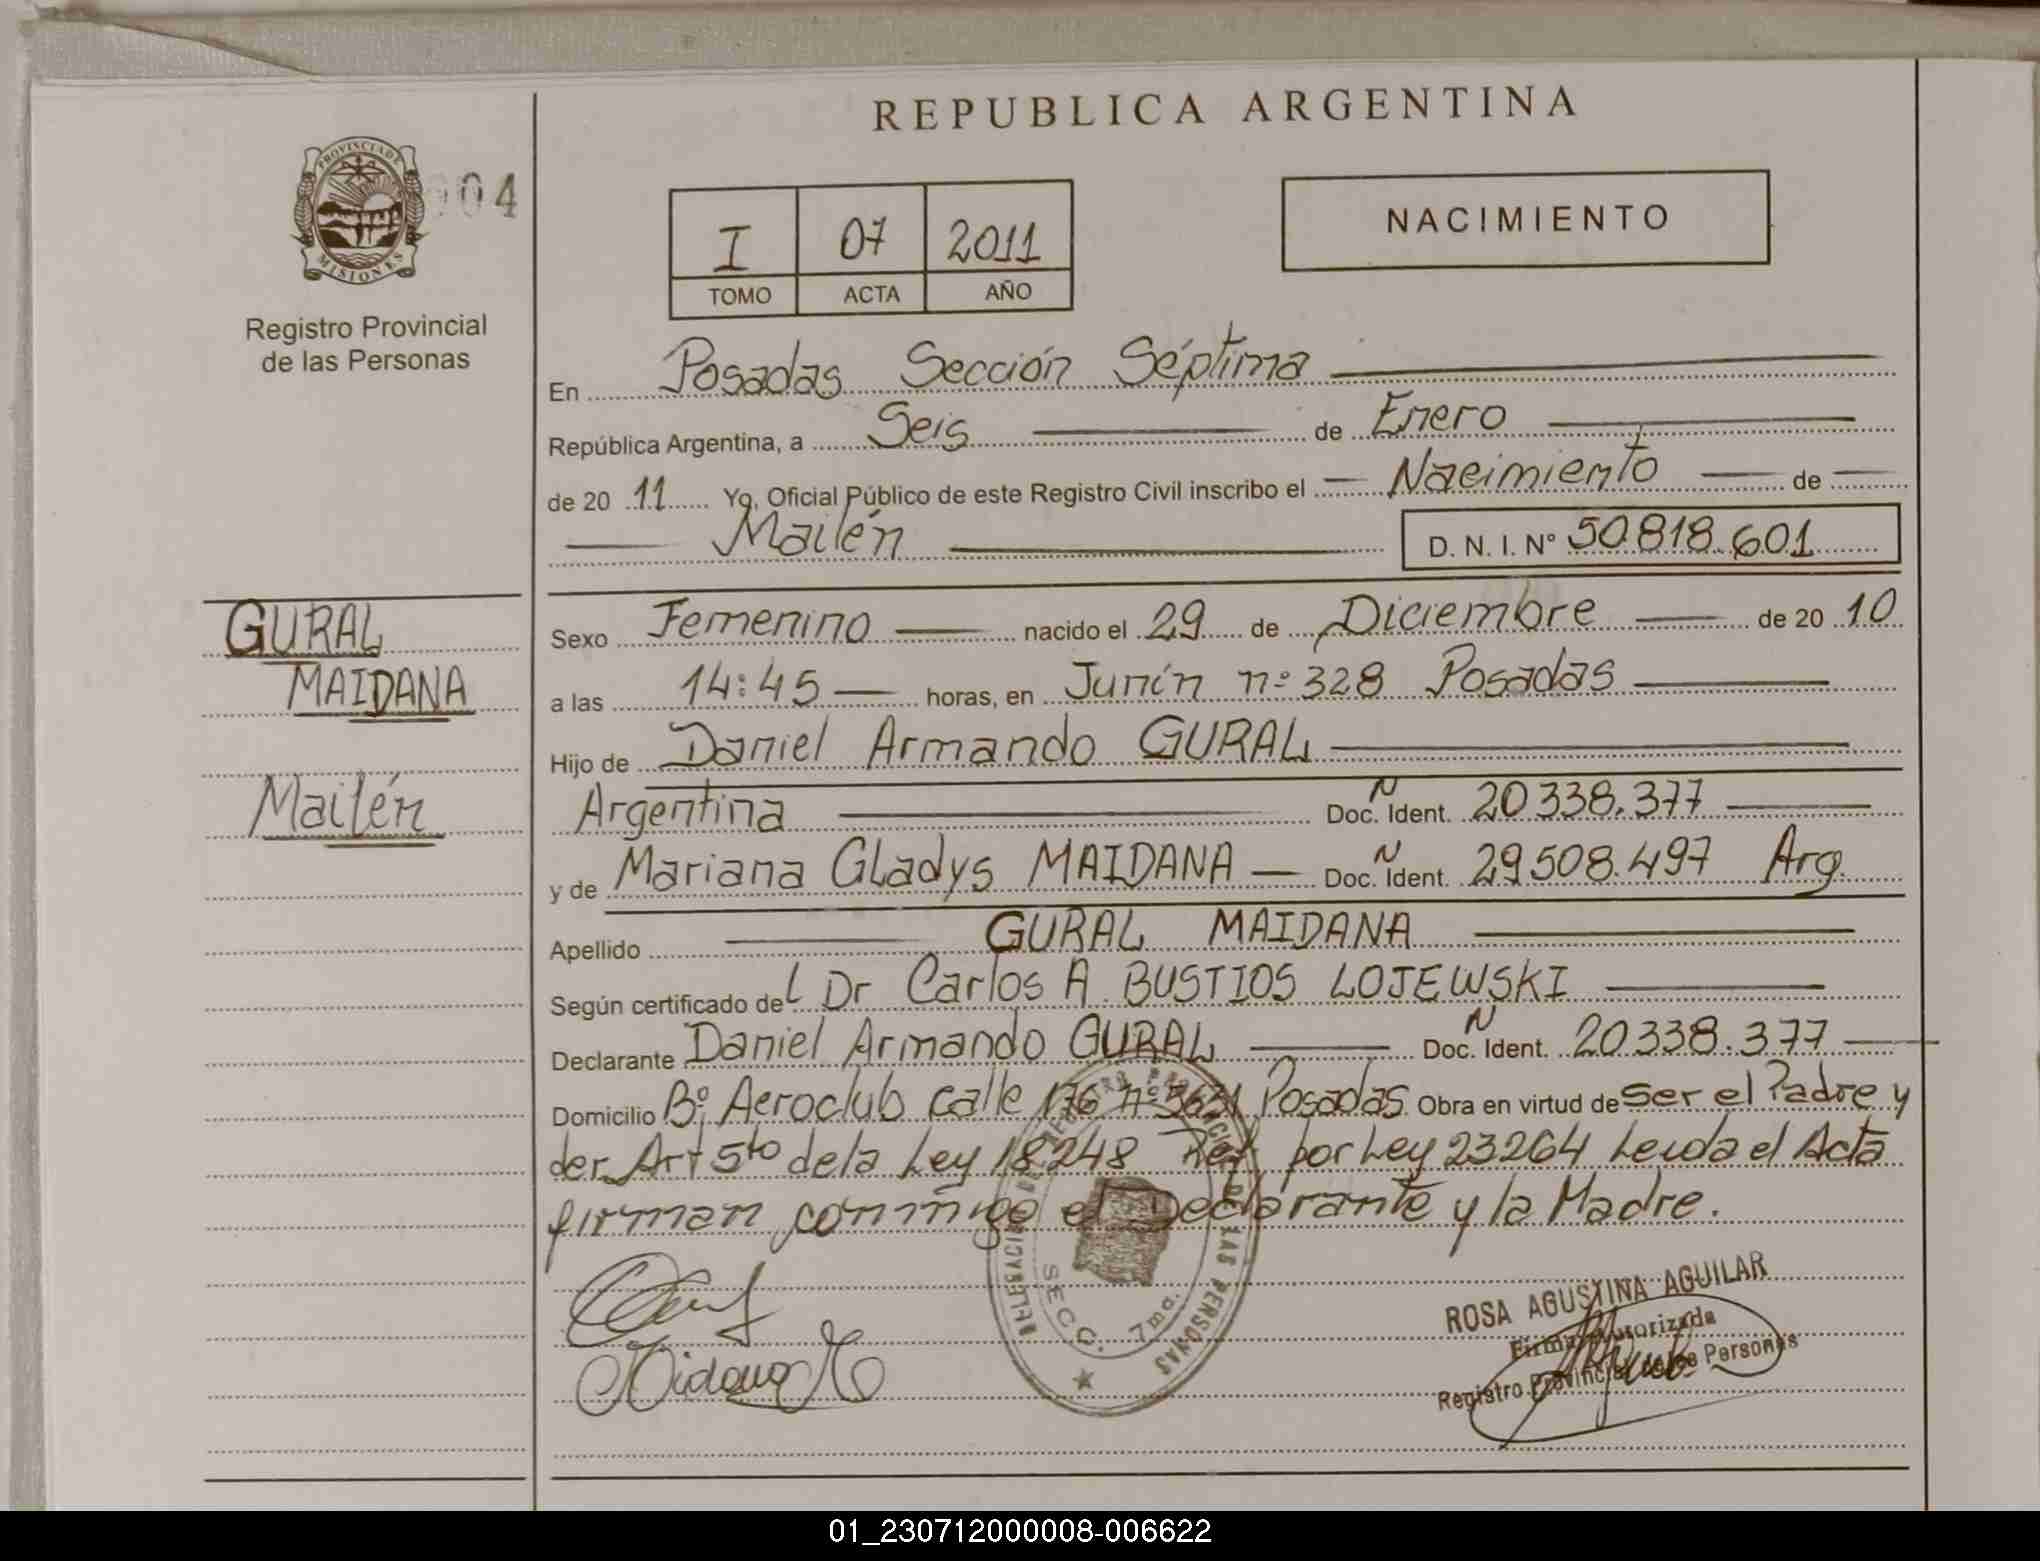 REPUBLICA ARGENTINA
PROVINCIA DE
MISIONES
004
Registro Provincial
de las Personas
I 07 2011
TOMO ACTA AÑO
NACIMIENTO
En Posadas Sección Séptima
República Argentina, a Seis de Enero
de 20 11 Yo, Oficial Público de este Registro Civil inscribo el Nacimiento de
Mailén D. N. I. Nº 50.818.601
GURAL
MAIDANA
Mailén
Sexo Femenino nacido el 29 de Diciembre de 20 10
a las 14:45 horas, en Junín nº 328 Posadas
Hijo de Daniel Armando GURAL
Argentina Doc. N Ident. 20338.377
y de Mariana Gladys MAIDANA Doc. N Ident. 29508.497 Arg.
Apellido GURAL MAIDANA
Según certificado del Dr Carlos A. BUSTIOS LOJEWSKI
Declarante Daniel Armando GURAL Doc. N Ident. 20338.377
Domicilio Bº Aeroclub calle 176 nº 3631 Posadas Obra en virtud de ser el Padre y
der Art 5to de la Ley 18248 Ref por Ley 23264 Leida el Acta
firman conmigo el Declarante y la Madre.
Maidana
SECC. 7ma.
LAS PERSONAS
ROSA AGUSTINA AGUILAR
Firma Autorizada
Registro Provincial de las Personas
01_230712000008-006622